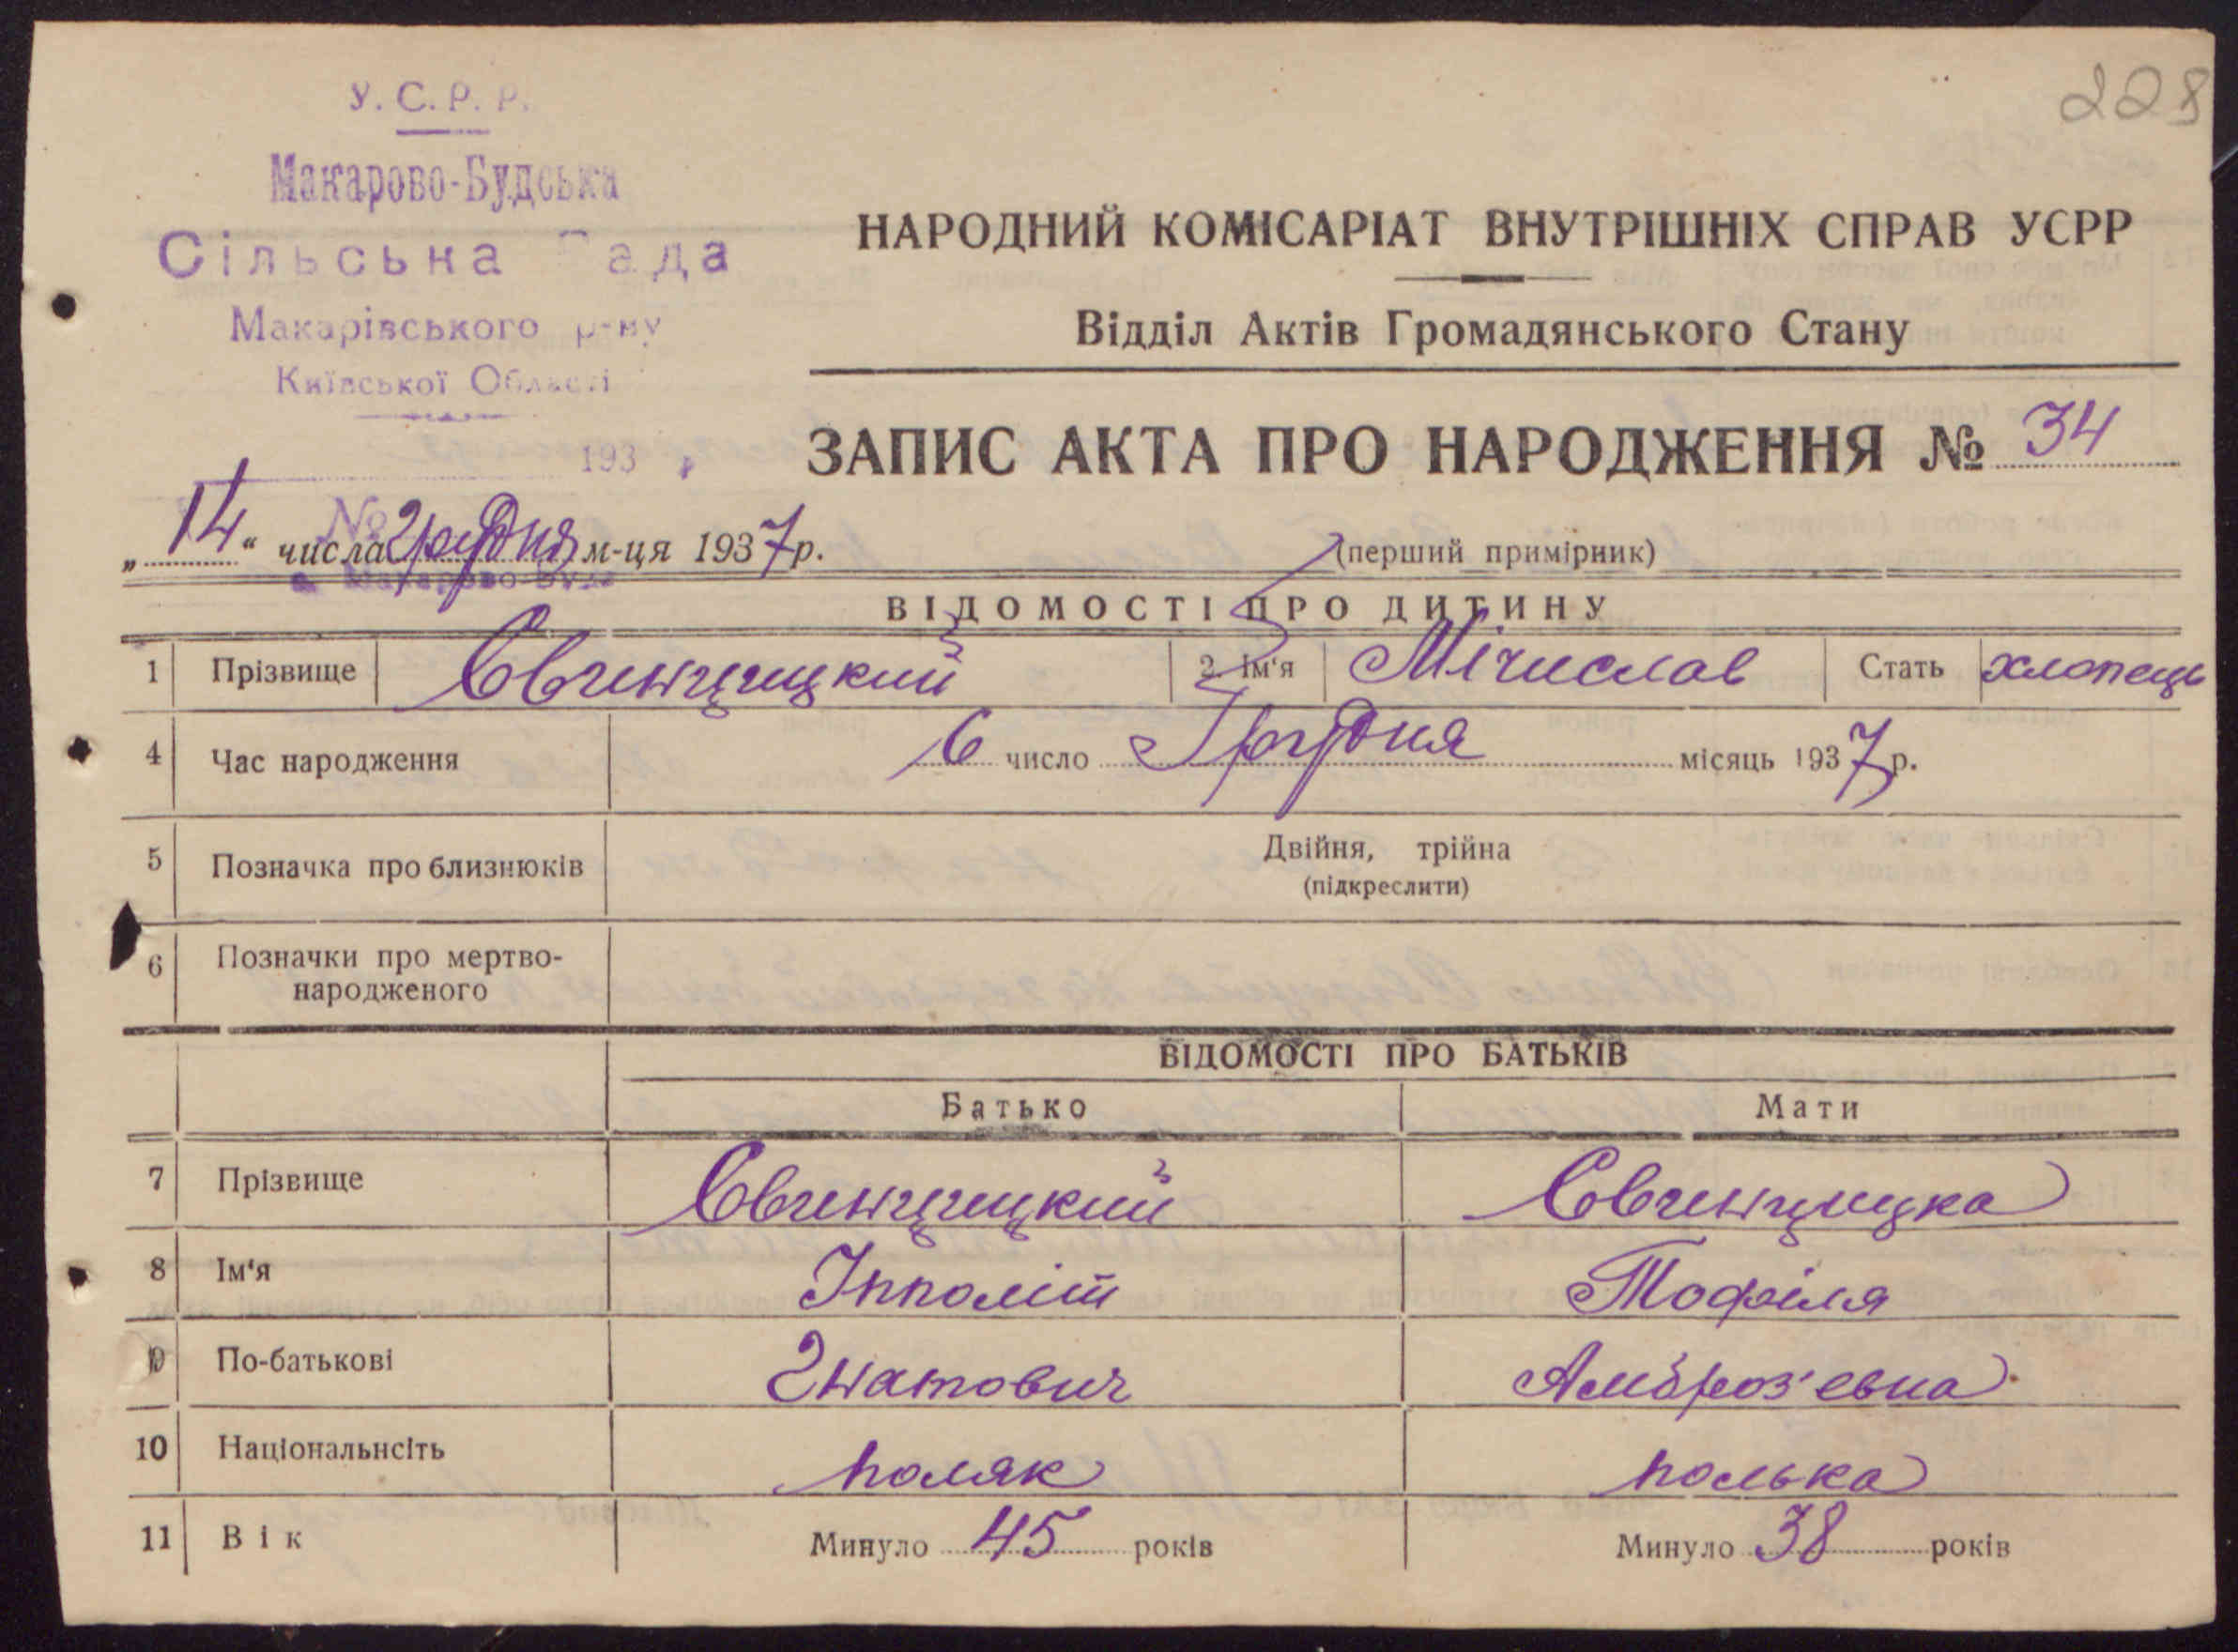 228
У. С. Р. Р.
Макарово-Будська
Сільська Рада
Макарівського р-ну
Київської Області
193 р
№
НАРОДНИЙ КОМІСАРІАТ ВНУТРІШНІХ СПРАВ УСРР
Відділ Актів Громадянського Стану
ЗАПИС АКТА ПРО НАРОДЖЕННЯ № 34
„14“ числа грудня м-ця 1937 р.
с. Макарово-Буда
(перший примірник)
ВІДОМОСТІ ПРО ДИТИНУ
1 Прізвище Свенціцкий 2 Ім'я Мічислав Стать хлопець
4 Час народження 6 число Грудня місяць 1937 р.
5 Позначка про близнюків Двійня, трійна
(підкреслити)
6 Позначки про мертво-
народженого
ВІДОМОСТІ ПРО БАТЬКІВ
Батько Мати
7 Прізвище
8 Ім'я Іпполіт Тофіля
9 По-батькові Гнатович Амброз'евна
10 Національнсіть поляк полька
11 Вік Минуло 45 років Минуло 38 років